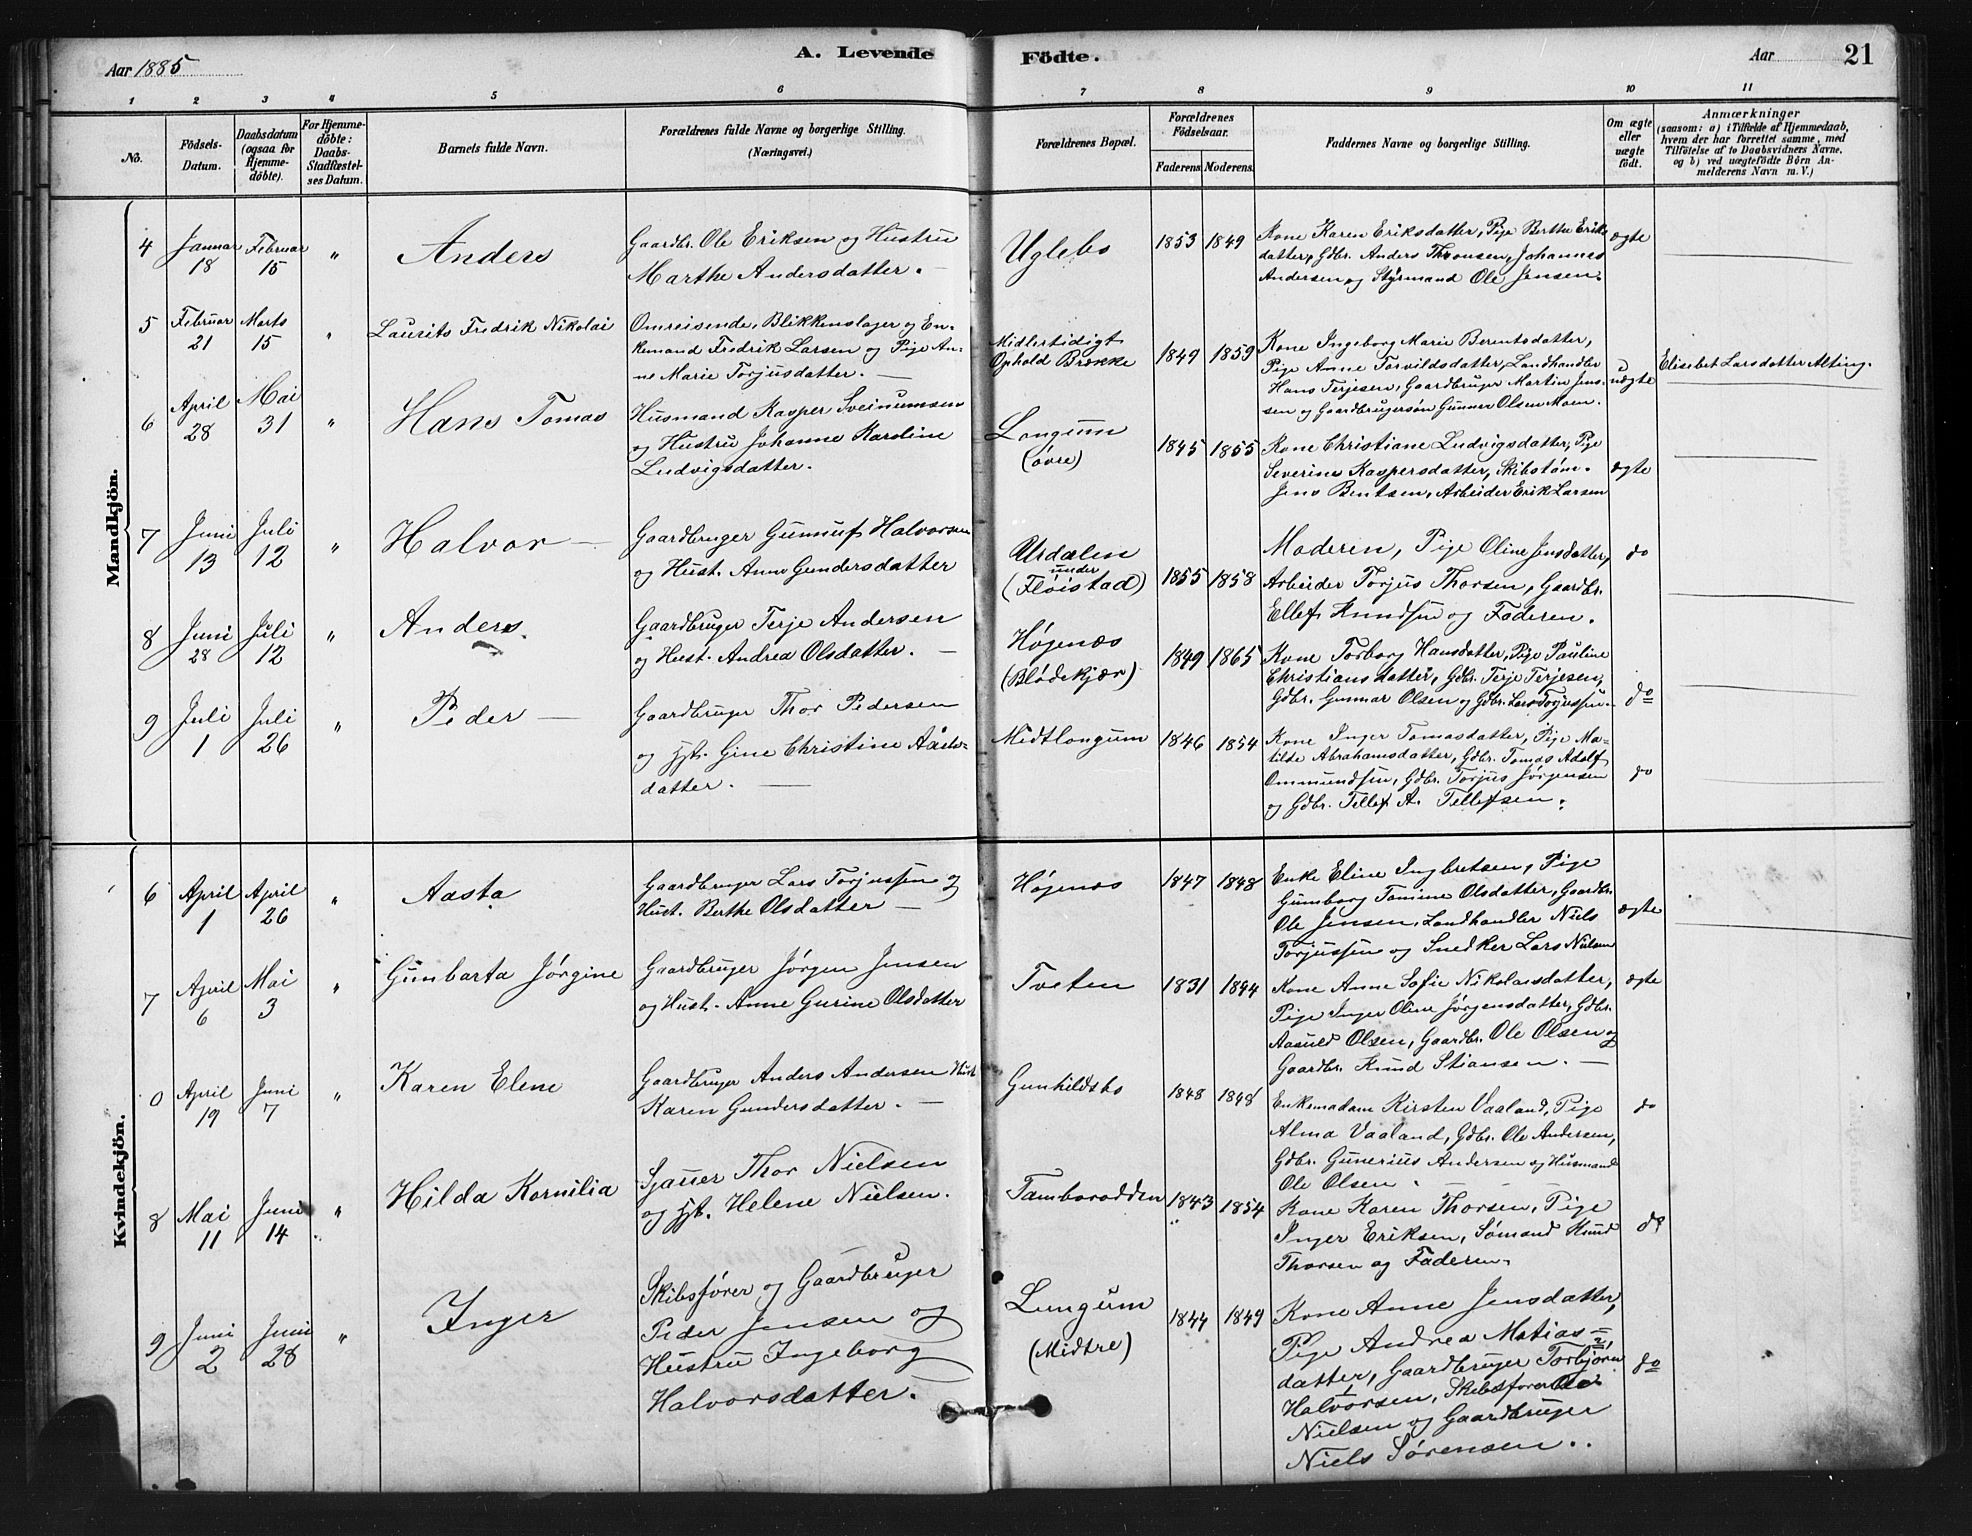 Aar 1885
A. Levende
Födte.
Aar
21
1
2
3
4
5
6
7
8
9
10
11
No.
Födsels-
Datum.
Daabsdatum
(ogsaa for
Hjemme-
döbte).
For Hjemme-
döbte:
Daabs-
Stadfæstel-
ses Datum.
Barnets fulde Navn.
Forældrenes fulde Navne og borgerlige Stilling.
(Næringsvei.)
Forældrenes Bopæl.
Forældrenes
Födselsaar.
Faderens.
Moderens.
Faddernes Navne og borgerlige Stilling.
Om ægte
eller
uægte
født.
Anmærkninger
(saasom: a) i Tilfælde af Hjemmedaab,
hvem der har forrettet samme, med
Tilføielse af to Daabsvidners Navne,
og b) ved uægtefödte Börn An-
melderens Navn m. V.)
Mandkjön.
4
Januar
18
Februar
15
"
Anders
Gaardbr. Ole Eriksen og Hustru
Marthe Andersdatter.
Uglebo
1853
1849
Kone Karen Eriksdatter, Pige Berthe Eriks-
datter, Gdbr. Anders Thronsen, Johannes
Andersen og Styrmand Ole Jensen.
ægte
5
Februar
21
Marts
15
"
Laurits Fredrik Nikolai
Omreisende, Blikkenslager og En-
kemand Fredrik Larsen og Pige An-
ne Marie Torjusdatter.
Midlertidigt
Ophold Brække
1849
1859
Kone Ingeborg Marie Berentsdatter,
Pige Anne Torvildsdatter, Landhandler
Hans Terjesen, Gaardbruger Martin Jens-
sen og Gaardbrugersøn Gunner Olsen Moen.
uægte
Elisebet Larsdatter Alting.
6
April
28
Mai
31
"
Hans Tomas
Husmand Kasper Sveinumsen
og Hustru Johanne Karoline
Ludvigsdatter.
Longum
(øvre)
1845
1855
Kone Christiane Ludvigsdatter, Pige
Severine Kaspersdatter, Skibstøm.
Jens Bentsen, Arbeider Erik Larsen
ægte
7
Juni
13
Juli
12
"
Halvor
Gaardbruger Gunnuf Halvorsen
og Hust. Anne Gundersdatter
Urdalen
under
(Fløistad)
1855
1858
Moderen, Pige Oline Jensdatter,
Arbeider Torjus Thorsen, Gaardbr.
Ellef Knudsen og Faderen.
do
8
Juni
28
Juli
12
"
Anders
Gaardbruger Terje Andersen
og Hust. Andrea Olsdatter.
Høgenæs
(Blødekjær)
1849
1865
Kone Torborg Hansdatter, Pige Pauline
Christiansdatter, Gdbr. Terje Terjesen,
Gdbr. Gunnar Olsen og Gdbr. Lars Torjussen.
do
9
Juli
1
Juli
26
"
Peder
Gaardbruger Thor Pedersen
og Hst. Gine Christine Aads-
datter.
Midtlongum
1846
1854
Kone Inger Tomasdatter, Pige Ma-
tilde Abrahamsdatter, Gdbr. Tomas Adolf
Ommundsen, Gdbr. Torjus Jørgensen
og Gdbr. Tellef A. Tellefsen.
do
Kvindekjön.
6
April
1
April
26
"
Aasta
Gaardbruger Lars Torjussen og
Hust. Berthe Olsdatter
Høgenæs
1847
1848
Enke Eline Ingbretsen, Pige
Gumborg Tomine Olsdatter, Gaardbr.
Ole Jensen, Landhandler Niels
Torjussen og Snedker Lars Nielsen
ægte
7
April
6
Mai
3
"
Gunbarta Jørgine
Gaardbruger Jørgen Jensen
og Hust. Anne Gurine Olsdatter
Tveten
1831
1844
Kone Anne Sofie Nikolaisdatter,
Pige Inger Oline Jørgensdatter, Gdbr.
Aasuld Olsen, Gaardbr. Ole Olsen og
Gaardbr. Knud Stiansen.
ægte
0
April
19
Juni
7
"
Karen Elene
Gaardbruger Anders Andersen Hust
Karen Gundersdatter.
Gunhildsbo
1848
1848
Enkemadam Kirsten Vaaland, Pige
Alma Vaaland, Gdbr. Ole Andersen,
Gdbr. Gunerius Andersen og Husmand
Ole Olsen.
do
8
Mai
11
Juni
14
"
Hilda Kornilia
Sjauer Thor Nielsen
og Hst. Helene Nielsen.
Tamborodden
1843
1854
Kone Karen Thorsen, Pige
Inger Eriksen, Sømand Knud
Thorsen og Faderen.
do
9
Juni
2
Juni
28
"
Inger
Skibsfører og Gaardbruger
Peder Jensen og
Hustru Ingeborg
Halvorsdatter.
Lungum
(Midtre)
1844
1849
Kone Anne Jensdatter,
Pige Andrea Matias-
datter, Gaardbruger Torbjørn
Halvorsen, Skibsfører Ole
Nielsen og Gaardbruger
Niels Sørensen.
do